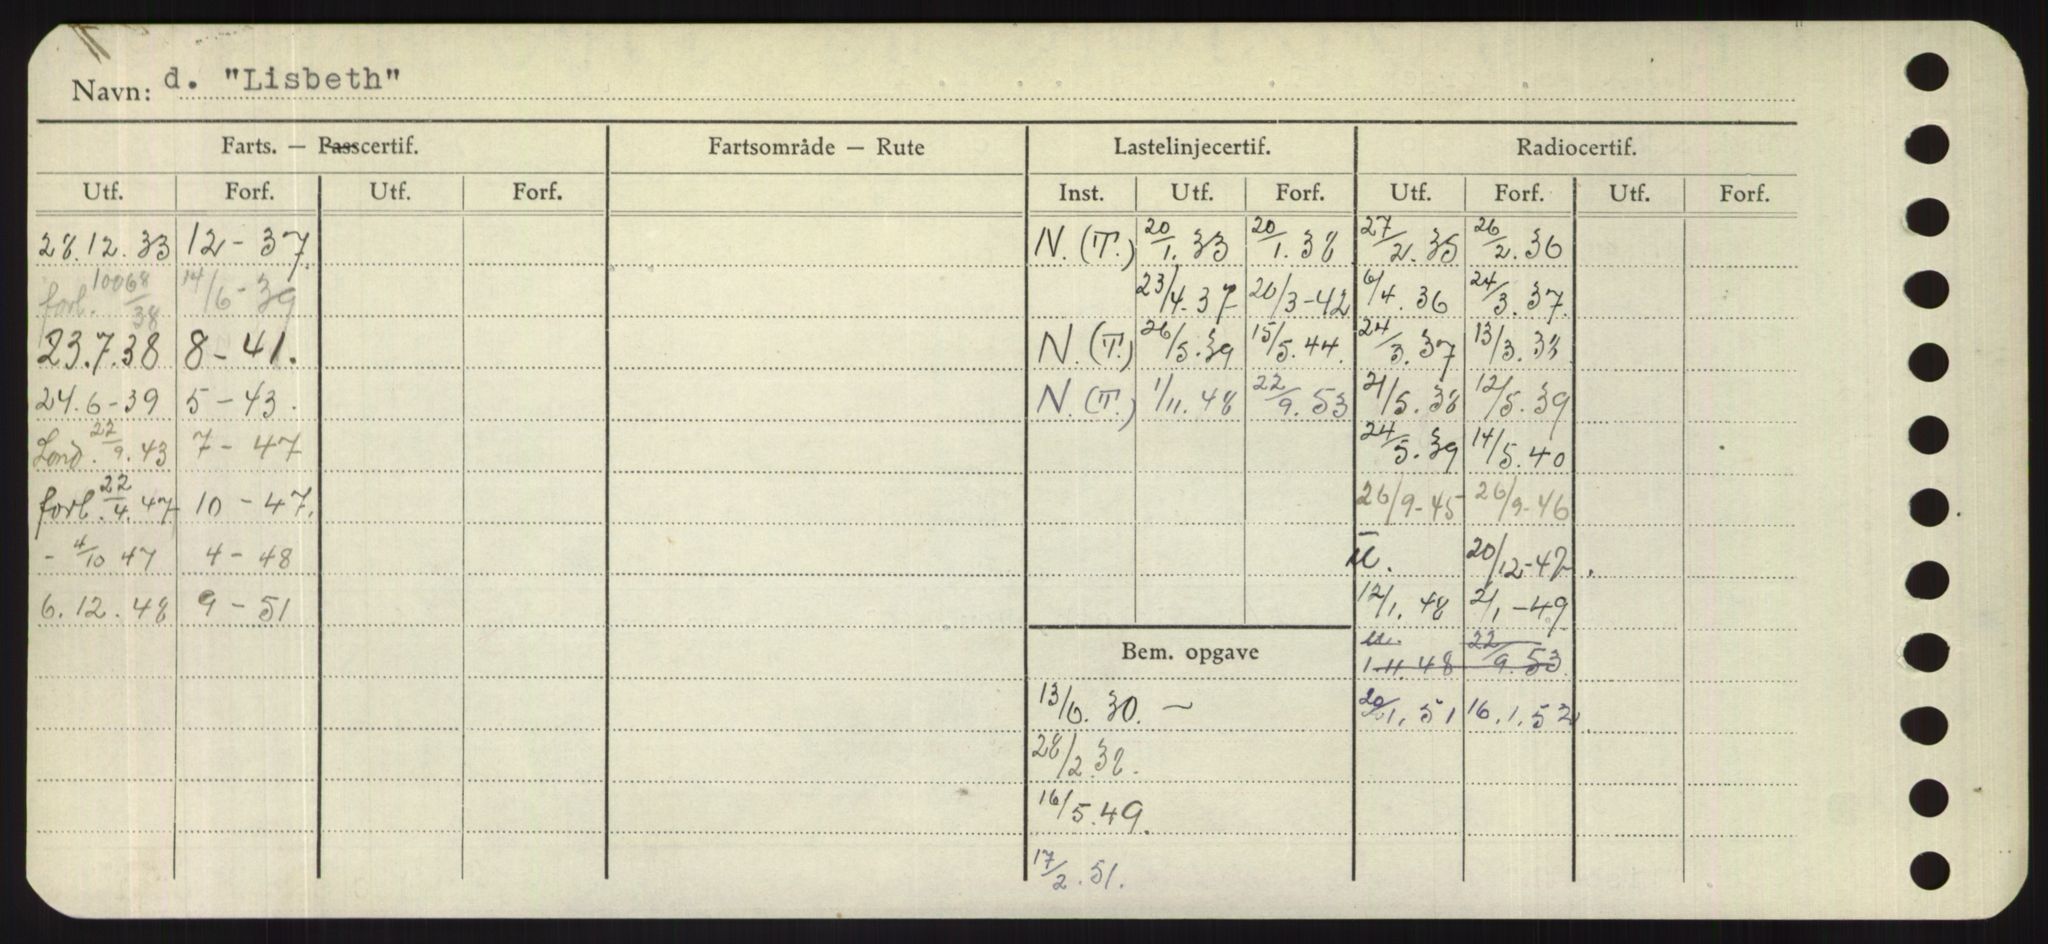 Navn: d. "Lisbeth"
Farts. — Passcertif. Fartsområde — Rute Lastelinjecertif. Radiocertif.
Utf. Forf. Utf. Forf. Inst. Utf. Forf. Utf. Forf. Utf. Forf.
28.12.33 12-37 N.(T.) 20/1.33 20/1.38 27/2.35 26/2.36
forl. 10068/38 14/6-39 23/4.37 20/3-42 6/4.36 24/3.37.
23.7.38 8-41. N.(T.) 26/5.39 15/5.44. 24/3.37 13/3.38
24.6-39 5-43. N.(T.) 1/11.48 22/9.53 21/5.38 12/5.39
Lond. 22/9.43 7-47 24/5.39 14/5.40
forl. 22/4.47 10-47. 26/9-45 26/9-46
- 4/10 47 4-48 20/12-47.
6.12.48 9-51 12/1.48 2/1-49
Bem. opgave 1.11.48 22/9.53
13/6.30. ~ 20/1.51 16.1.52
28/2.38.
16/5.49.
17/2.51.